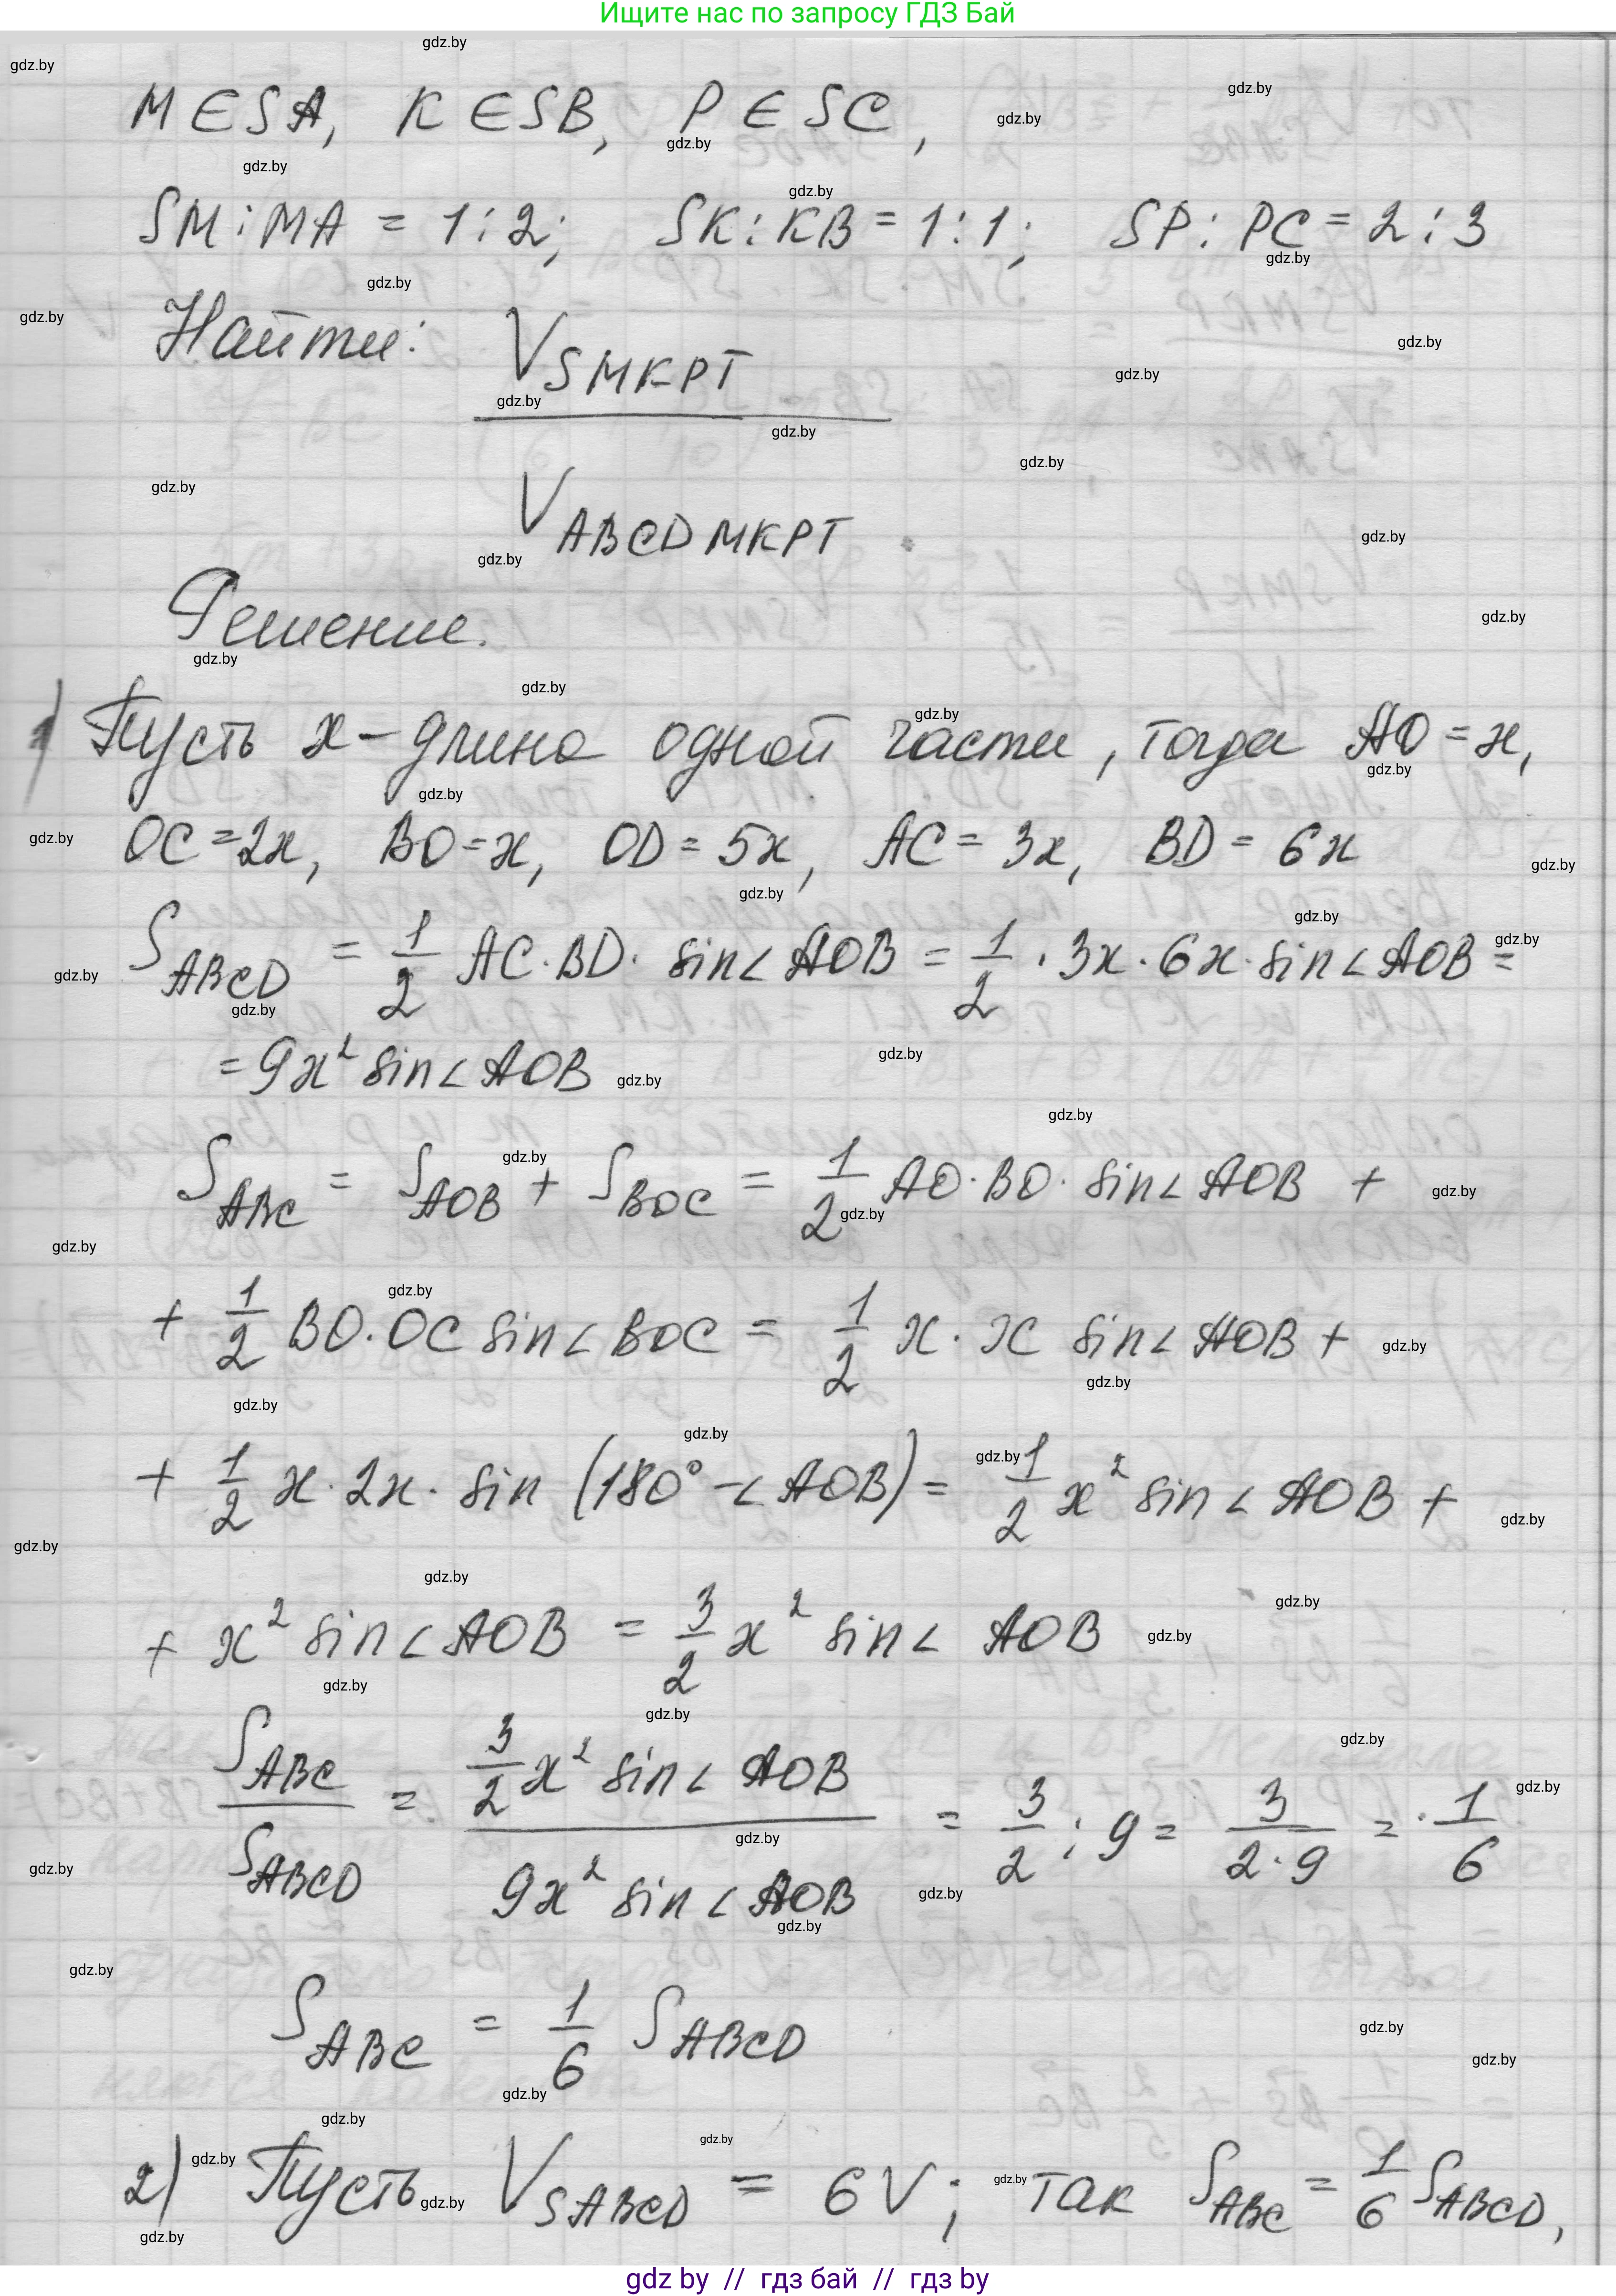 Ищите нас по запросу ГДЗ Бай
M ∈ SA, K ∈ SB, P ∈ SC,
SM : MA = 1 : 2; SK : KB = 1 : 1; SP : PC = 2 : 3
Найти: V SMKPT
V ABCDMKPT.
Решение.
1) Пусть x – длина одной части, тогда AO = x,
OC = 2x, BO = x, OD = 5x, AC = 3x, BD = 6x
S ABCD = 1/2 AC · BD · sin∠AOB = 1/2 · 3x · 6x · sin∠AOB =
= 9x² sin∠AOB
S ABC = S AOB + S BOC = 1/2 AO · BO · sin∠AOB +
+ 1/2 BO · OC sin∠BOC = 1/2 x · x sin∠AOB +
+ 1/2 x · 2x · sin (180° – ∠AOB) = 1/2 x² sin∠AOB +
+ x² sin∠AOB = 3/2 x² sin∠AOB
S ABC / S ABCD = 3/2 x² sin∠AOB / 9x² sin∠AOB = 3/2 : 9 = 3/(2·9) = 1/6
S ABC = 1/6 S ABCD
2) Пусть V SABCD = 6V; так S ABC = 1/6 S ABCD,
gdz by // гдз бай // гдз by